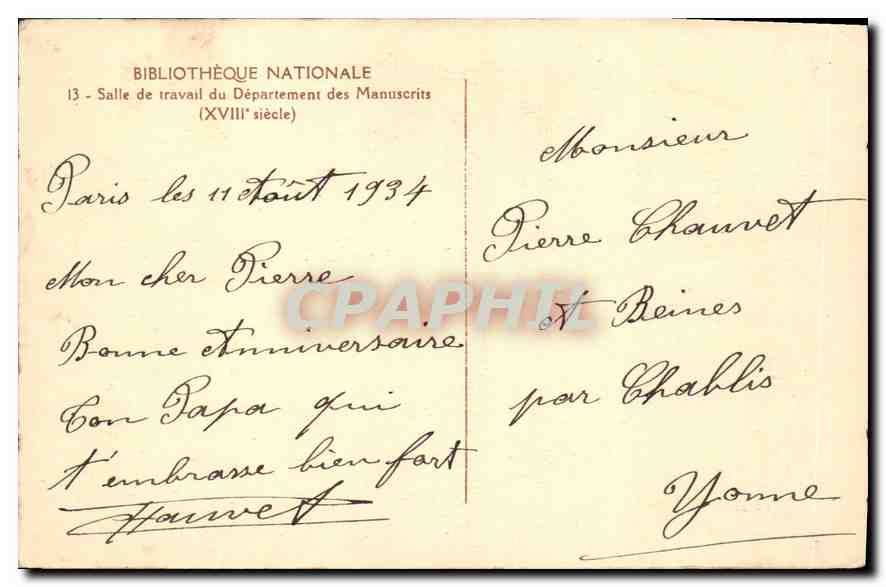 BIBLIOTHÈQUE NATIONALE
13 - Salle de travail du Département des Manuscrits
(XVIIIe siècle)
Paris les 11 Août 1934
Mon cher Pierre
Bonne Anniversaire
Ton Papa qui
t'embrasse bien fort
Chauvet
Monsieur
Pierre Chauvet
A Beines
par Chablis
Yonne
CPAPHIL